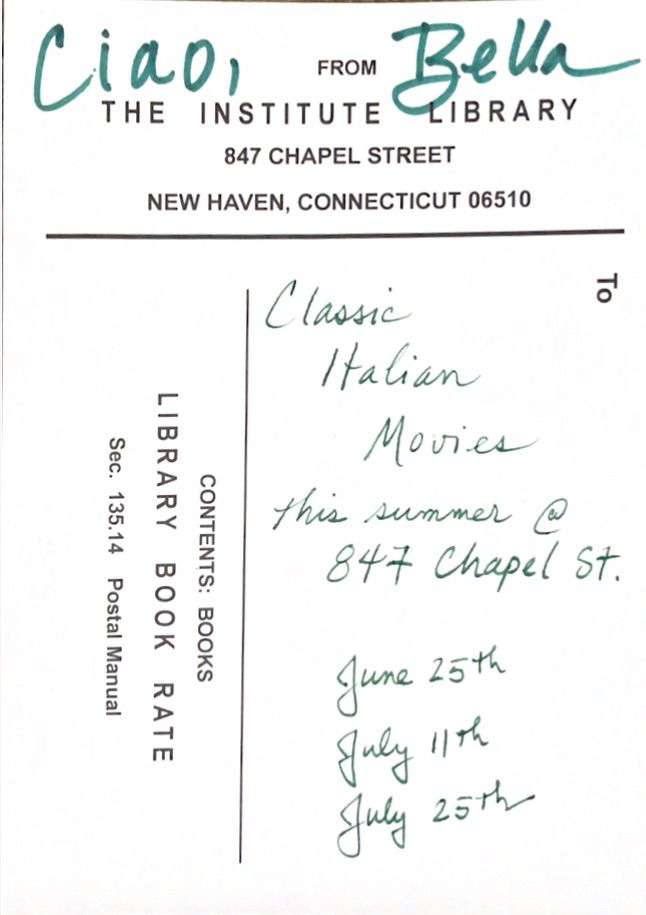 Ciao, FROM Bella
THE INSTITUTE LIBRARY
847 CHAPEL STREET
NEW HAVEN, CONNECTICUT 06510
To
Classic
Italian
Movies
this summer @
847 Chapel St.
June 25th
July 11th
July 25th
CONTENTS: BOOKS
LIBRARY BOOK RATE
Sec. 135.14 Postal Manual